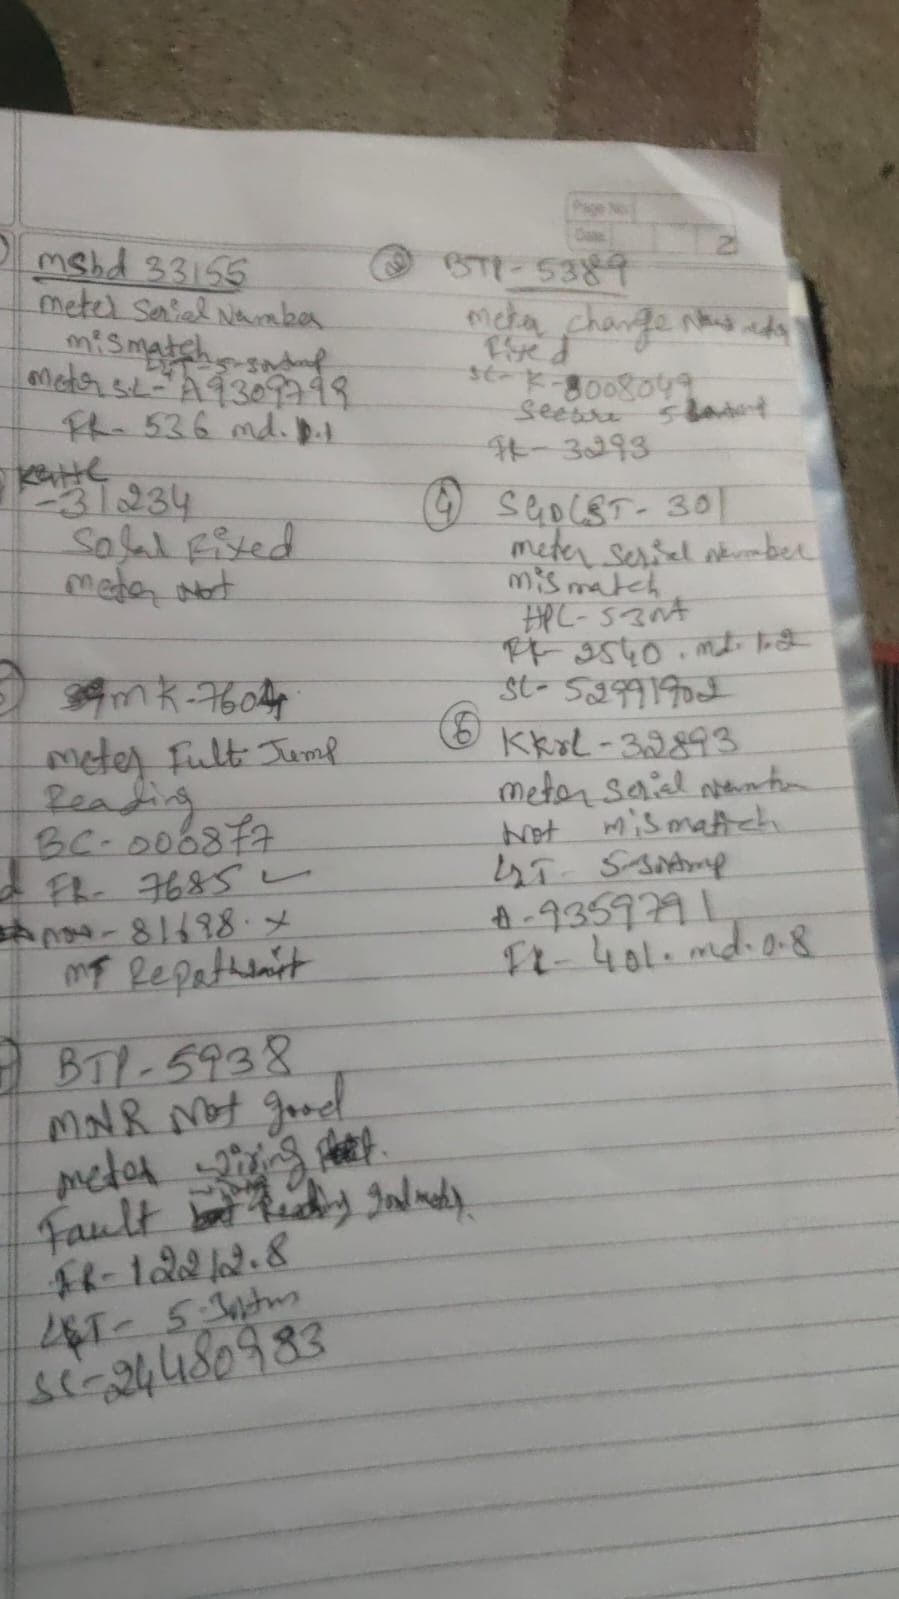 Page No.
Date
2
msbd 33155
meter Serial Number
mismatch
L&T-5-30Amp
meter SL- A9309799
FR- 536 md. 0.1
② BTP-5389
meter change New meter
Fixed
SL- K-8008049
Secure
FR-3293
-31234
Solal Fixed
meter Not
④ SGDCST- 301
meter Serial Number
mismatch
HPL- 5-30A
FR 2540. md. 1.2
SL- 52991902
mk-7604
meter Fult Jump
Reading
BC- 006877
FR- 7685 ✓
now- 81698. x
⑥ KKRL-32893
meter Serial Number
Not mismattch
L&T- 5-30Amp
A-9359791
FR- 401. md. 0.8
BTP-5938
MNR Not good
meter wiring
Fault Reading good meter.
FR-12212.8
L&T- 5-30Am
SL-24480983